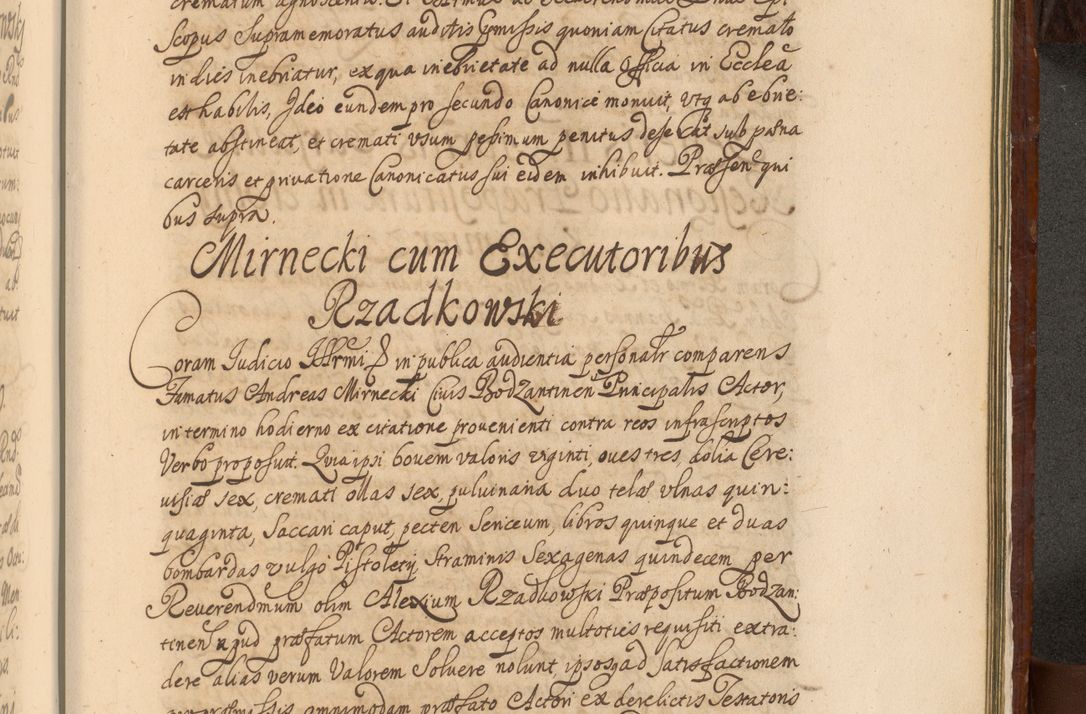 Scopus supramemoratus auditis Epmissis quoniam Citatus cremato
in dies inebriatur, ex qua inebrietate ad nulla Officia in Ecclea
est habilis, Ideo eundem pro secundo Canonicè monuit, utq ab ebrie:
tate abstineat, et cremati usum pessimum penitus deserat sub pœna
carceris et privatione Canonicatus sui eidem inhibuit. Præsen qui
bus supra.
Mirnecki cum Executoribus
Rzadkowski
Coram Iudicio in publica audientia personalr comparens
Famatus Andreas Mirnecki Civis Bodzantinen Principalis Actor,
in termino hodierno ex citatione provenienti contra reos infrascriptos
Verbo proposuit. Quia ipsi bovem valoris viginti, oves tres, dolia Cere:
visiæ sex, cremati ollas sex, pulvinaria duo telæ ulnas quin:
quaginta, Saccari caput, pecten Sericeum, libros quinque et duas
bombardas vulgo Pistolety, Straminis Sexagenas quindecem per
Reverendmum olim Alexium Rzadkowski Præpositum Bodzan:
tinen apud præfatum Actorem acceptos multoties requisiti extra:
dere alias verum Valorem Solvere nolunt, ipsosq ad satisfactionem
præmissis omnimodam præfato Actori ex derelictis Testatoris